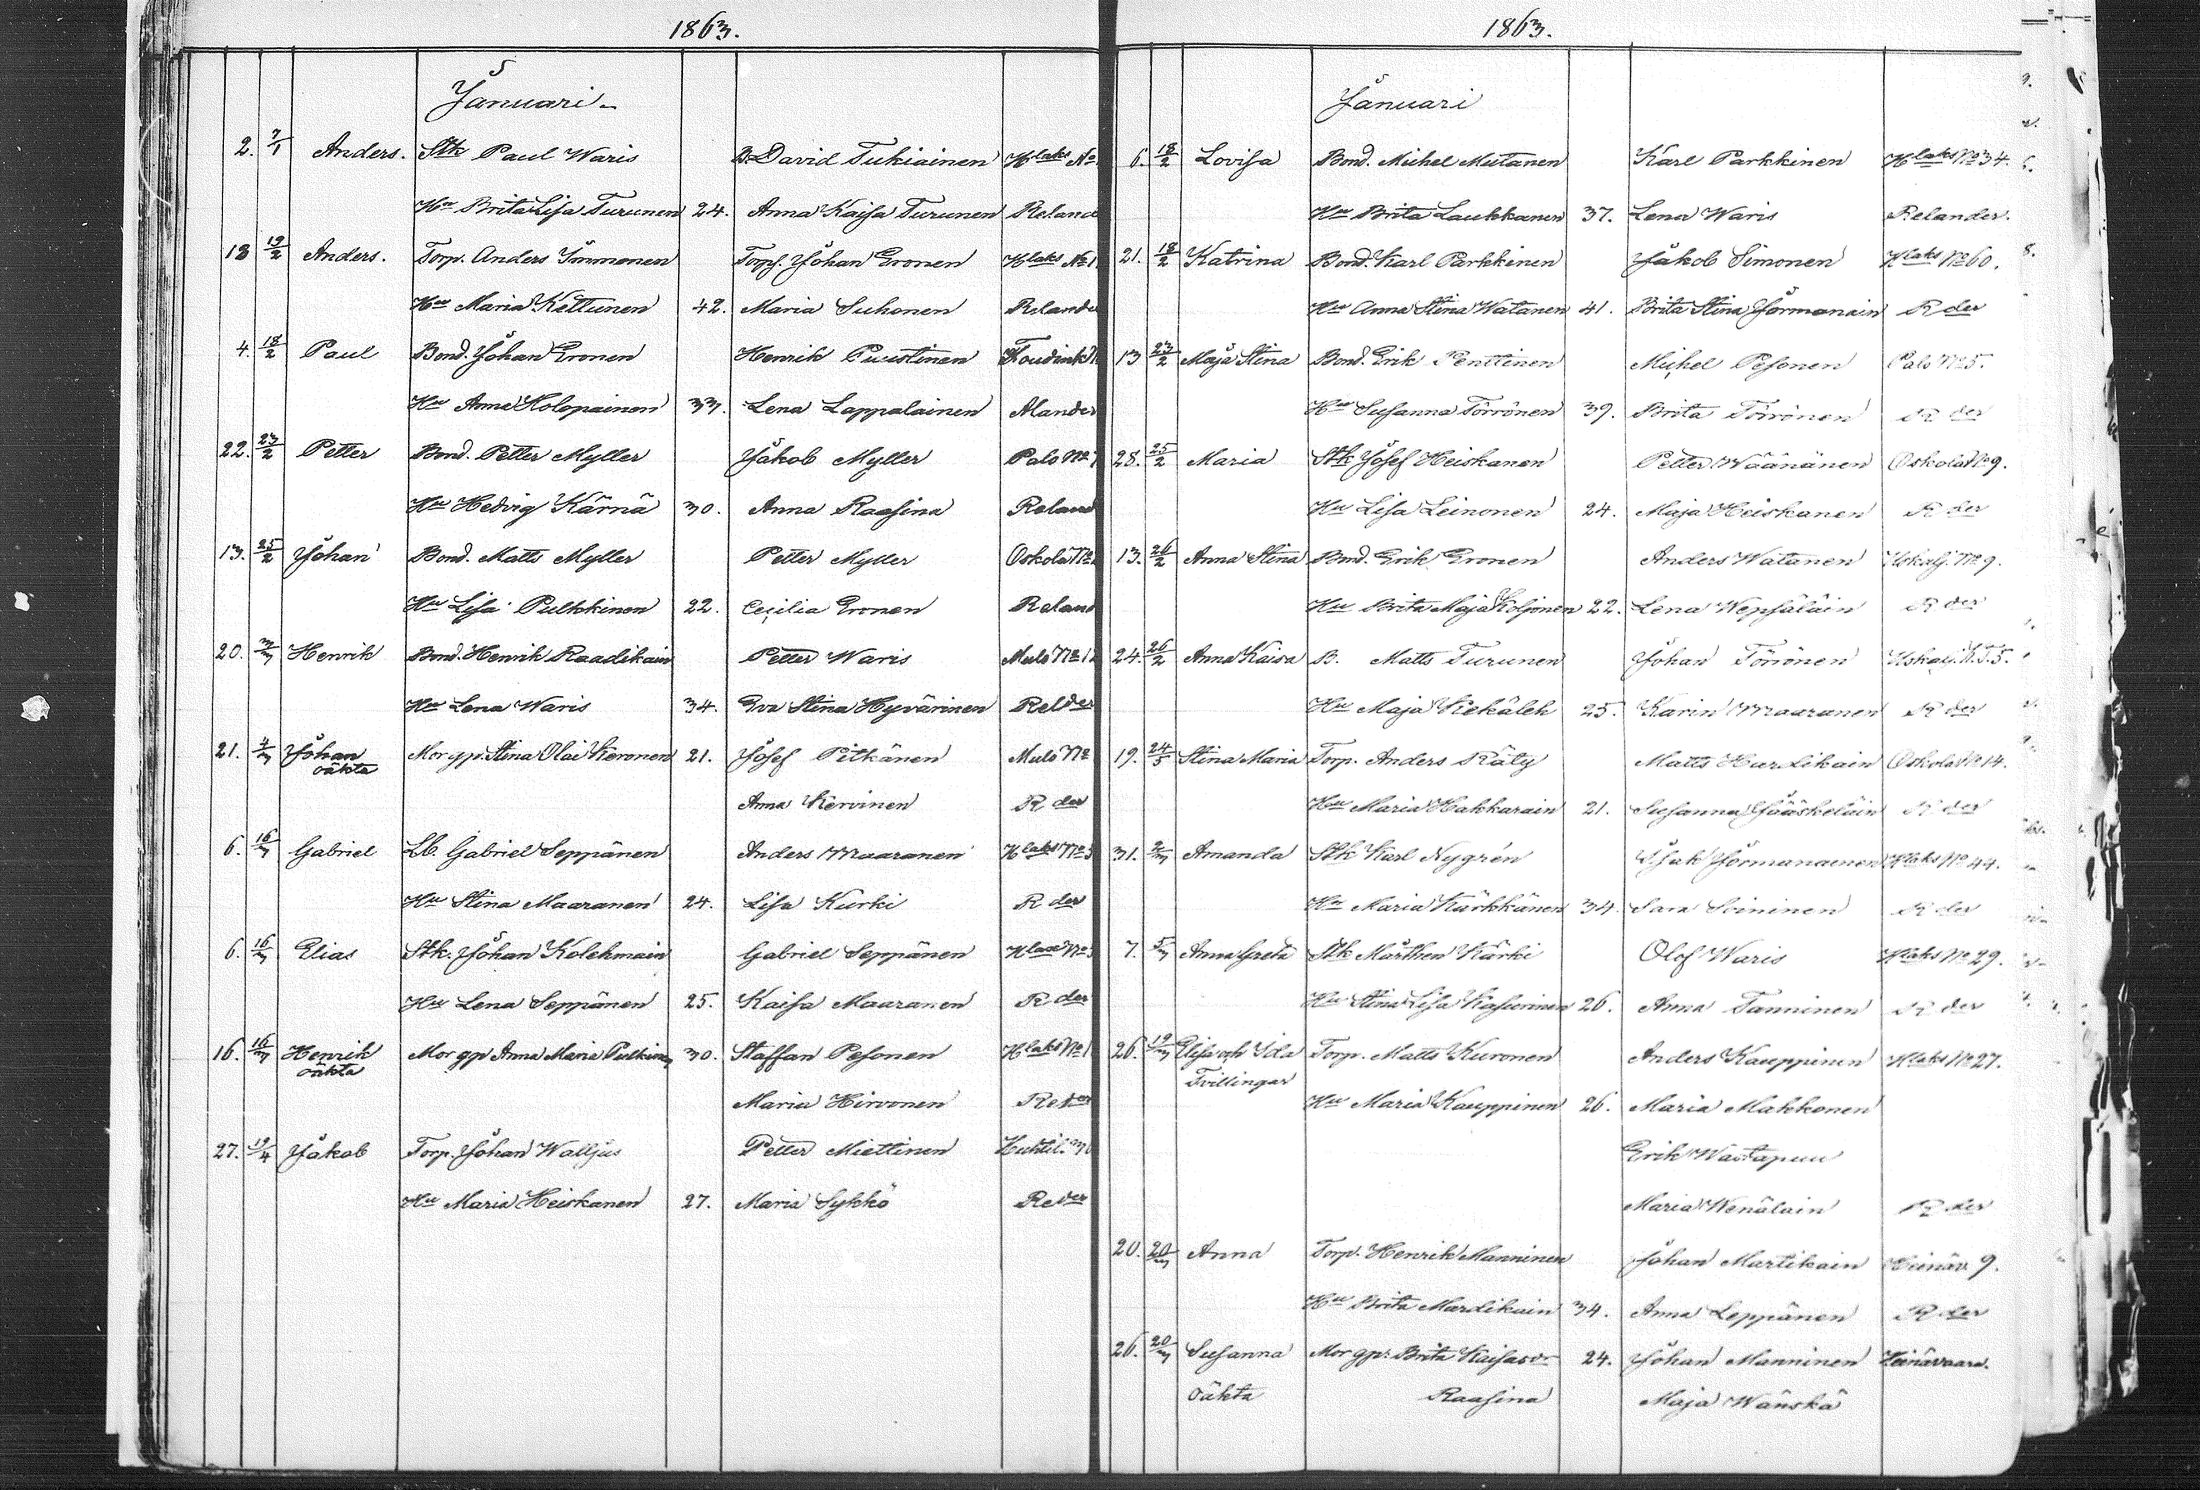 1863.
Januari
2. 7/1 Anders. Stk Paul Waris B. David Tukiainen Hlaks No
Hu Brita Lisa Turunen 24. Anna Kaisa Turunen Reland
13 19/2 Anders. Torp. Anders Immonen Torps. Johan Eronen Hlaks No 1
Hu Maria Kettunen 42. Maria Suhonen Relande
4. 18/2 Paul Bond. Johan Eronen Henrik Puustinen
Hu Anna Holopainen 33. Lena Lappalainen
22. 23/2 Petter Bond. Petter Myller Jakob Myller Palo No 7
Hu Hedvig Kärnä 30. Anna Raasina Reland
13. 25/2 Johan Bond. Matts Myller Petter Myller Oskola No
Hu Lisa Pulkkinen 22. Cecilia Eronen Reland
20. 3/3 Henrik Bond. Henrik Raadikain Petter Waris Mulo No 12
Hu Lena Waris 34. Eva Stina Hyvärinen Relder
21. 4/3 Johan Mor gp. Stina Olai Keronen 21. Josef Pitkänen Mulo No
oäkta
Anna Kervinen R der
6. 16/3 Gabriel Lb. Gabriel Seppänen Anders Maaranen Hlaks No 3
Hu Stina Maaranen 24. Lisa Kurki R der
6. 16/3 Elias Stk. Johan Kolehmain Gabriel Seppänen No 3
Hu Lena Seppänen 25. Kaisa Maaranen R der
16. 16/3 Henrik Mor gp Anna Maria Pulkinen 30. Staffan Pesonen Hlaks No 1
oäkta
Maria Hirvonen Reder
27. 19/4 Jakob Torp. Johan Walljus Petter Miettinen Huhtil.
Hu Maria Heiskanen 27. Maria Sykkö Reder
1863.
Januari
6. 18/2 Lovisa Bond. Michel Mutanen Karl Parkkinen Hlaks No 34.
Hu Brita Laukkanen 37. Lena Waris Relander.
21. 18/2 Katrina Bond. Karl Parkkinen Jakob Simonen Hlaks No 60.
Hu Anna Stina Watanen 41. Brita Stina Jormanain R der
13 23/2 Maja Stina Bond. Erik Penttinen Michel Pesonen Palo No 5.
Hu Susanna Törrönen 39. Brita Törrönen R der
28. 25/2 Maria Stk Josef Heiskanen Petter Wäänänen Oskola No 9.
Hu Lisa Leinonen 24. Maja Heiskanen R der
13. 26/2 Anna Stina Bond. Erik Eronen Anders Watanen No 9.
Hu Brita Maja Koljonen 22. Lena Wepsäläin R der
24. 26/2 Anna Kaisa B. Matts Turunen Johan Törrönen
Hu Maja Kekäleh 25. Karin Maaranen R der
19. 24/5 Stina Maria Torp. Anders Räty Matts Hurdikain Oskola No 14.
Hu Maria Hakkarain 21. Susanna Jääskeläin R der
31. 2/3 Amanda Stk Karl Nygrén Isak Jormanaenen Hlaks No 44.
Hu Maria Kärkkänen 34. Sara Soininen R der
7. 5/3 Anna Greta Stk Mårthen Kärki Olof Waris Hlaks No 29.
Hu Stina Lisa Kasurinen 26. Anna Tanninen R der
26. 19/3 Elisa och Ida Torp. Matts Kuronen Anders Kauppinen Hlaks No 27.
Tvillingar
Hu Maria Kauppinen 26. Maria Makkonen
Erik Wastapuu
Maria Wenäläin R der
20. 20/3 Anna Torp. Henrik Manninen Johan Martikain Heinäv. 9.
Hu Brita Mardikain 34. Anna Leppänen R der
26. 20/3 Susanna Mor gp: Brita Kaisa 24. Johan Manninen Heinävaara.
oäkta Raasina Maja Wänskä